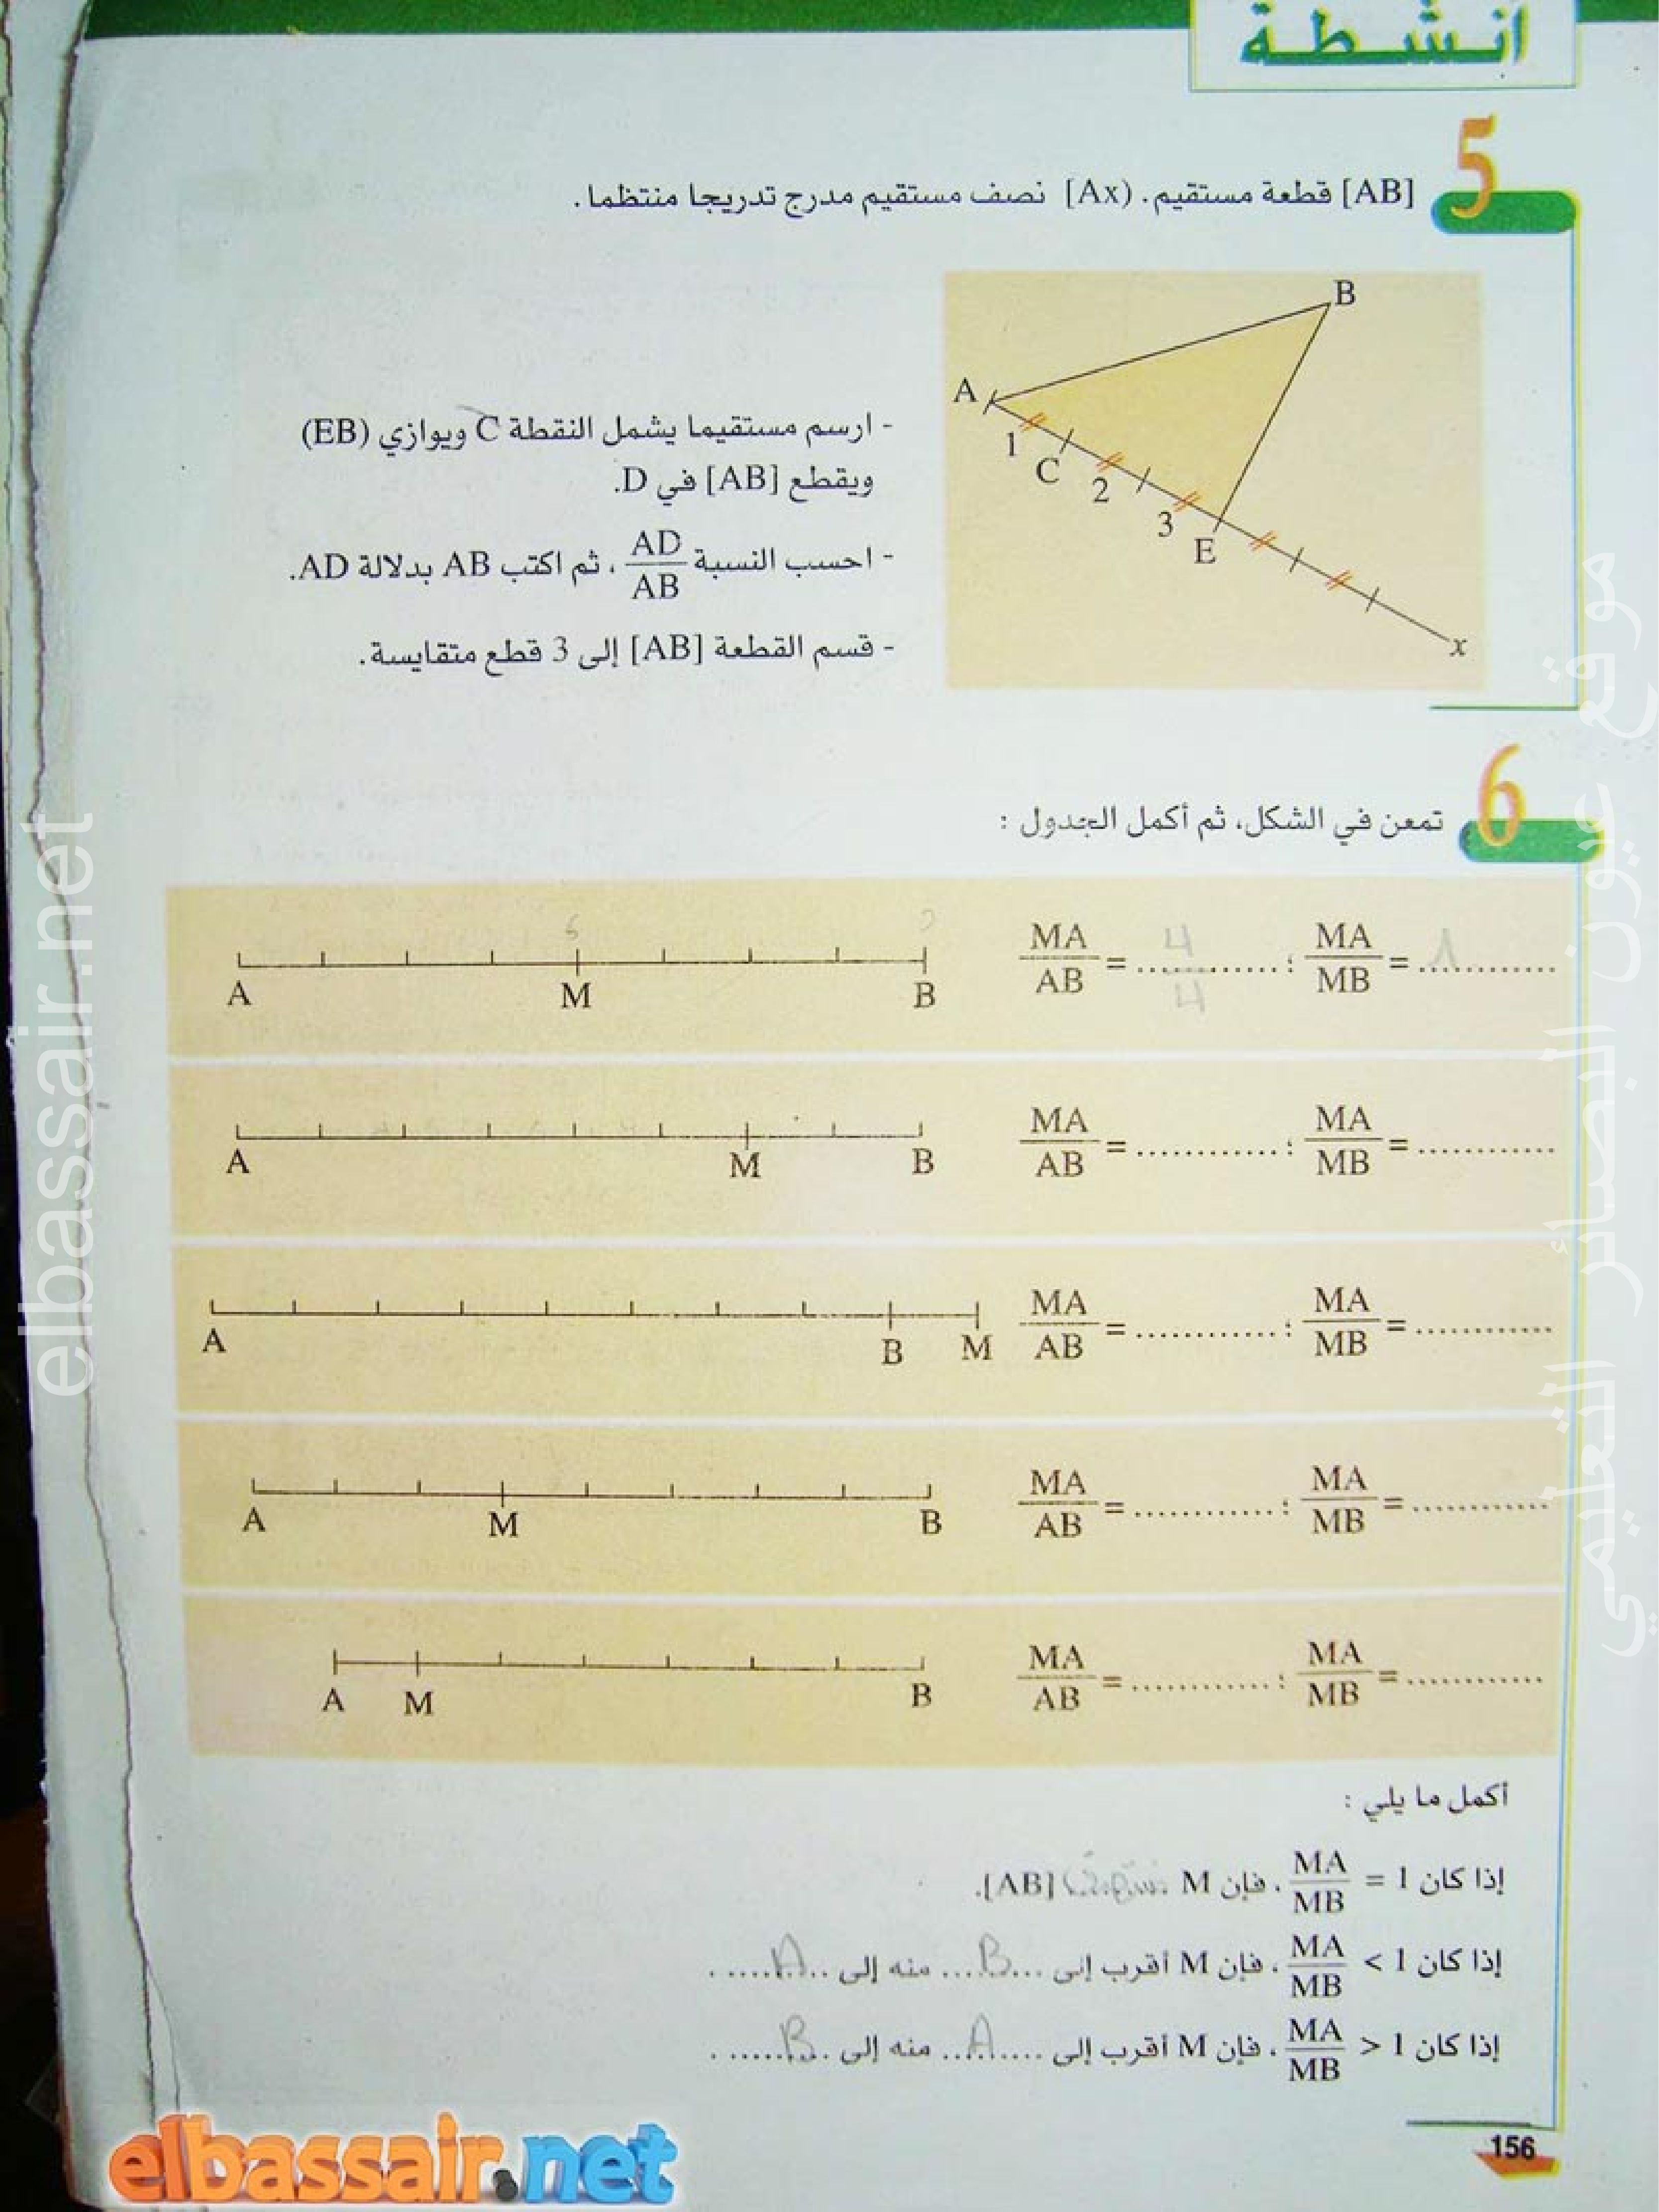 أنشطة
5
[AB] قطعة مستقيم. (Ax] نصف مستقيم مدرج تدريجا منتظما.
B
A
1
C
2
3
E
x
- ارسم مستقيما يشمل النقطة C ويوازي (EB)
ويقطع [AB] في D.
- احسب النسبة AD/AB، ثم اكتب AB بدلالة AD.
- قسم القطعة [AB] إلى 3 قطع متقايسة.
6
تمعن في الشكل، ثم أكمل الجدول :
A M B MA/AB = ............ ; MA/MB = ............
4
4
1
A M B MA/AB = ............ ; MA/MB = ............
A B M MA/AB = ............ ; MA/MB = ............
A M B MA/AB = ............ ; MA/MB = ............
A M B MA/AB = ............ ; MA/MB = ............
أكمل ما يلي :
إذا كان MA/MB = 1، فإن M [AB].
إذا كان MA/MB < 1، فإن M أقرب إلى ....B.... منه إلى ....A.... .
إذا كان MA/MB > 1، فإن M أقرب إلى ....A.... منه إلى ....B.... .
156
elbassair.net
elbassair.net
موقع عيون البصائر التعليمي